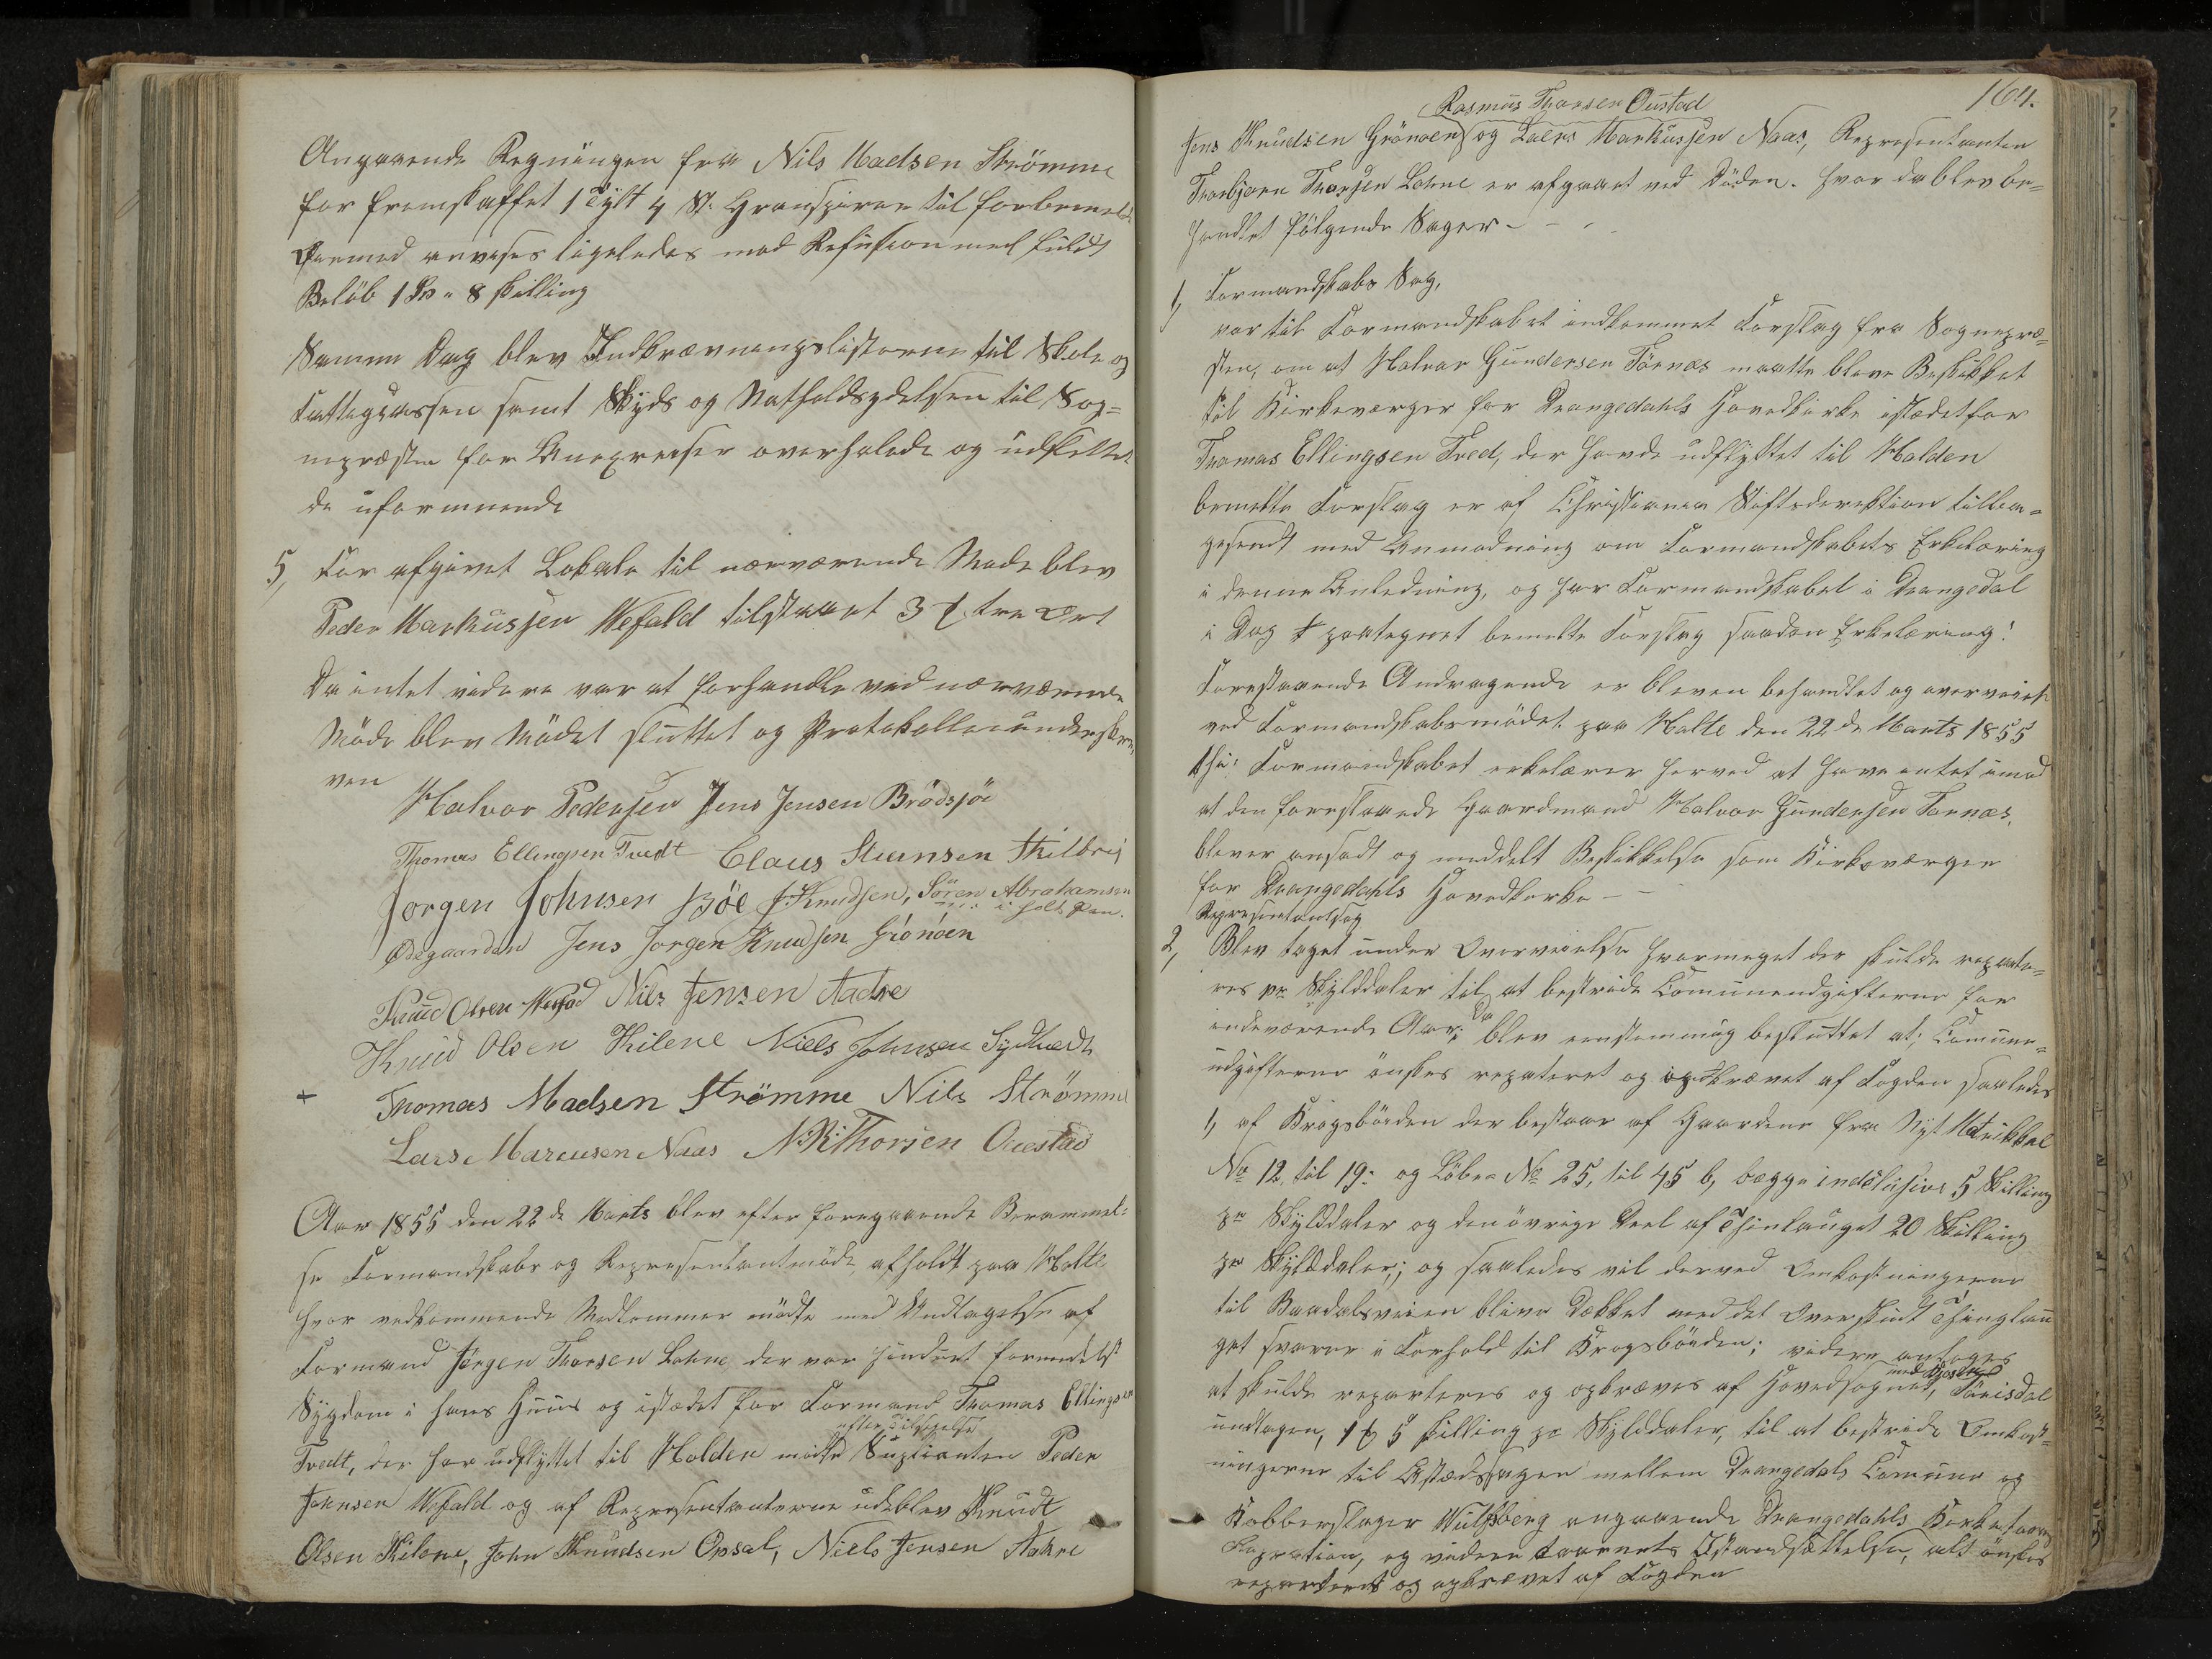 Angaaende Regningen fra Nils Madsen Strömme
for fremskaffet 1 Tylt 4 St. Granspirer til forbemeldte
Öiemed anvises ligeledes mod Refusion med fuldt
Beløb 1 Sp " 8 skilling
Samme Dag blev Indkrævningslisterne til Skole og
Fattigcassen samt Skyds og Natholdsydelsen til Sog=
nepræsten for Annexreiser overhalede og udskillede
de uformuende
5, For afgivet Lokale til nærværende Møde blev
Peder Markussen Wefald tilstaaet 3 tre Ort
Da intet videre var at forhandle ved nærværende
Møde blev Mødet sluttet og Protokollen underskre-
ven
Halvor Pedersen Jens Jensen Brødsjöe
Thomas Ellingsen Tvedt Claus Steensen Skilbrej
Jørgen Johnsen Bóe J. Knudsen, Søren Abrahamsen
m. i holt Pen.
Ødegaarden Jens Jørgen Knudsen Grönóen
Knud Olsen Wefald Nils Jensen Aadne
Knud Olsen Kilene Niels Johnsen Sydtvedt
+ Thomas Madsen Strömme Nils Strömme
Lars Marcusen Naas N. R. Thorsen Oustad
Aar 1855 den 22de Marts blev efter foregaaende Berammel=
se Formandskabs og Repræsentantmøde afholdt paa Holte
hvor vedkommende Medlemmer mødte med Undtagelse af
Formand Jörgen Thorsen Lohne der var hindret formedelst
Sygdom i hans Huus og istædet for Formand Thomas Ellingsen
efter Tilsigelse
Tvedt, der har udflyttet til Holden mødte Suplianten Peder
Johnsen Wefald og af Repræsentanterne udeblev Knudt
Olsen Kilene, John Knudsen Opsal, Niels Jensen Aakre
164.
Rasmus Thorsen Oustad
Jens Knudsen Grönoen og Laers Markussen Naas, Representanten
Thorbjørn Thorsen Lohne er afgaaet ved Döden. hvor da blev be=
handlet følgende Sager - - -
1, Formandskabs Sag,
var til Formandskabet indkommet Forslag fra Sognepræ=
sten, om at Halvor Gundersen Tørnæs maatte blive Beskikket
til Kirkeværger for Drangedahls Hovedkirke istædetfor
Thomas Ellingsen Tved, der havde udflyttet til Holden
bemeldte Forslag er af Christiania Stiftsdirektion tilba=
gesendt med Anmodning om Formandskabets Erklæring
i denne Anledning, og har Formandskabet i Drangedal
i Dag paategnet bemeldte Forslag saadan Erklæring!
Forestaaende Andragende er bleven behandlet og overveiet
ved Formandskabsmødet paa Holte den 22de Marts 1855
thi: Formandskabet erklærer herved at have intet imod
at den forestaaende Gaardmand Halvor Gundersen Tornæs,
bliver ansadt og meddelt Beskikkelse som Kirkeværger
for Drangedahls Hovedkirke -
Representantsag
2, Blev taget under Overveielse hvormeget der skulde reparte=
res pr Skylddaler til at bestride Comuneudgifterne for
indeværende Aar: Da blev eenstemmig besluttet at; Comune=
udgifterne ønskes reparteret og opkrævet af Fogden saaledes
1, af Krogsbøiden der bestaar af Gaardene fra Nyt Matrikkel
No 12, til 19: og Løbe= No 25, til 45 b, begge inclusive 5 Skilling
pr Skylddaler og den øvrige Deel af Thinlauget 20 Skilling
pr Skylddaler; og saaledes vil derved Omkostningerne
til Baadalsveien blive dækket med det Overskudt Thinglau
get svarer i Forhold til Krogsbøiden; videre antages
at skulde reparteres og opkræves af Hovedsognet, Törisdal
undtagen, 1 5 skilling pr Skylddaler, til at bestride Omkost=
ningerne til Astædssagen mellem Drangedals Comune og
Kobberslager Wulfsberg angaaende Drangedahls Kirketaarn
Repration, og videre Taarnets Istandsættelse, alt ønskes
reparteret og opkrævet af Fogden